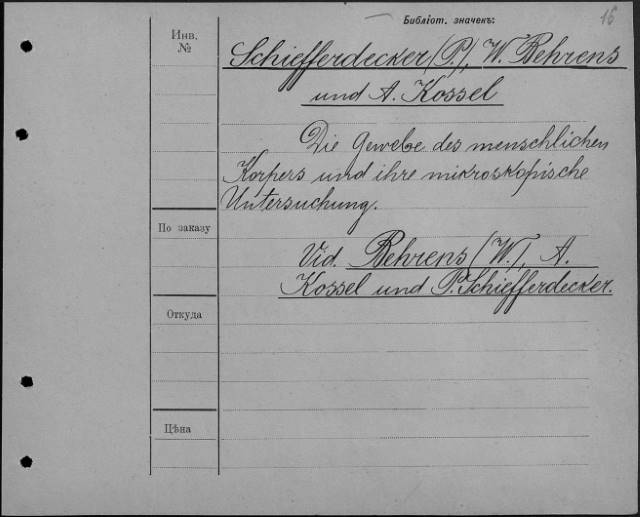 Библіот. значекъ:
16
Инв.
№
Schiefferdecker, (P.), W. Behrens
und A. Kossel
Die Gewebe des menschlichen
Korpers und ihre mikroskopische
Untersuchung.
По заказу
Vid. Behrens (W.), A.
Kossel und P. Schiefferdecker.
Откуда
Цѣна